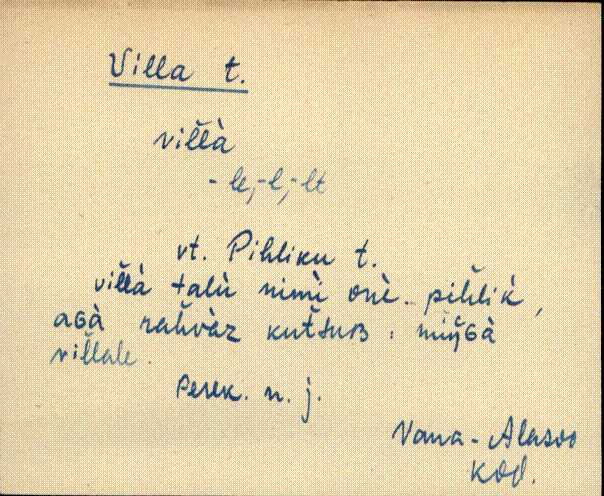 Villa t.
vil̆là
-le, -l, -lt
vt. Pihliku t.
vil̆là talù nimì onè pihlik̀,
aɢà rahvàz kutsuʙ : mińɢà
vil̆lale.
perek. n. j.
Vana-Alasoo
Kod.